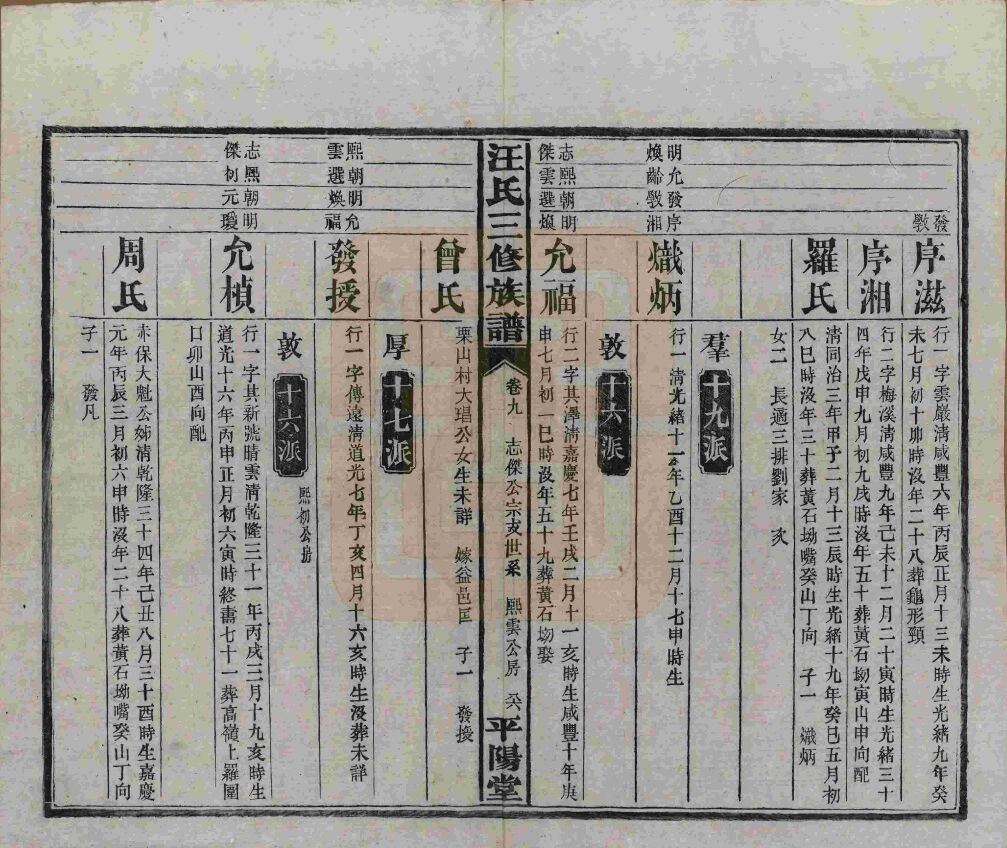 發
斆
序滋
行一字雲巖清咸豐六年丙辰正月十三未時生光緒九年癸
未七月初十卯時沒年二十八葬龜形頸
序湘
行二字梅溪清咸豐九年己未十二月二十寅時生光緒三十
四年戊申九月初九戌時沒年五十葬黃石坳寅山申向配
羅氏
清同治三年甲子二月十三辰時生光緒十九年癸巳五月初
八巳時沒年三十葬黃石坳嘴癸山丁向 子一 熾炳
女二 長適三排劉家 次
羣 十九派
明允發序
煥齡斆湘
熾炳
行一清光緒十一年乙酉十二月十七申時生
敦 十六派
志熙朝明
傑雲選煥
允福
行二字其澤清嘉慶七年壬戌二月十一亥時生咸豐十年庚
申七月初一巳時沒年五十九葬黃石坳娶
汪氏三修族譜 卷九 志傑公宗支世系 熙雲公房 平陽堂
曾氏
栗山村大琩公女生未詳 嫁益邑匡 子一 發授
厚 十七派
熙朝明允
雲選煥福
發授
行一字傳遠清道光七年丁亥四月十六亥時生沒葬未詳
敦 十六派 熙初公房
志熙朝明
傑初元瓊
允楨
行一字其新號晴雲清乾隆三十一年丙戌三月十九亥時生
道光十六年丙申正月初六寅時終壽七十一葬高嶺上羅圍
口卯山酉向配
周氏
赤保大魁公姊清乾隆三十四年己丑八月三十酉時生嘉慶
元年丙辰三月初六申時沒年二十八葬黃石坳嘴癸山丁向
子一 發凡